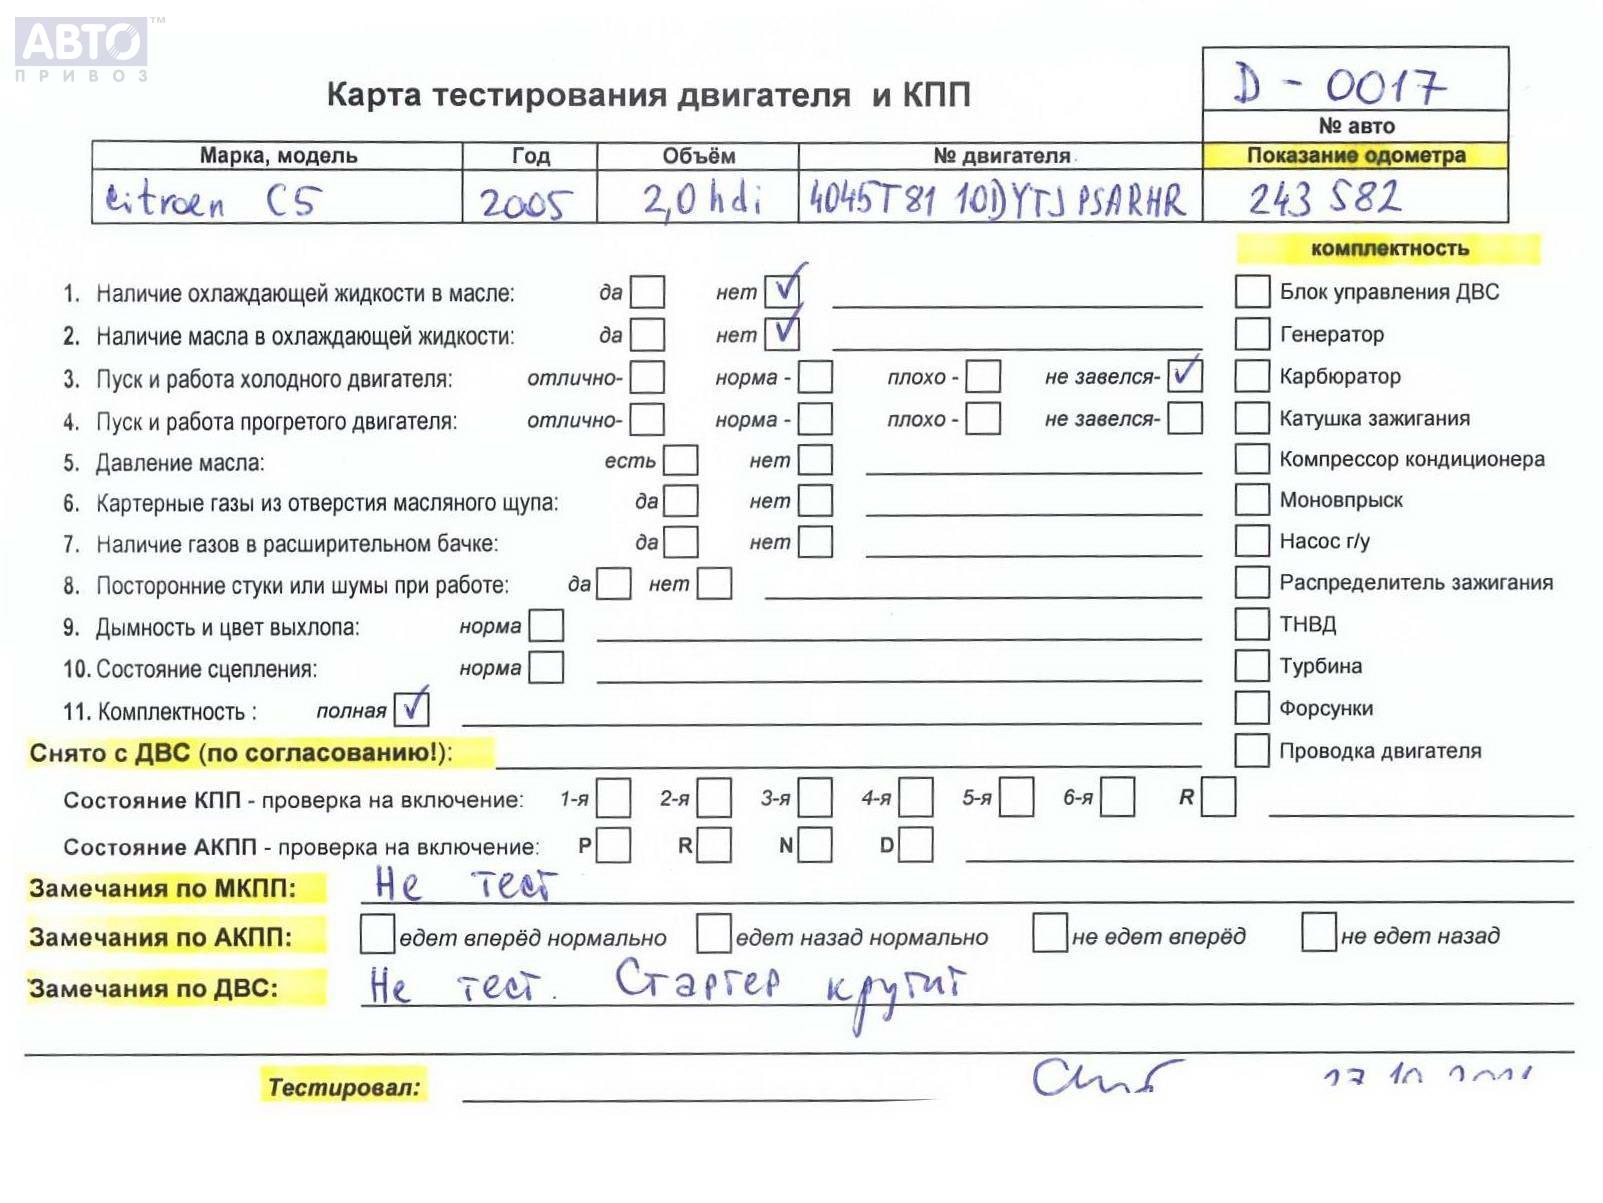 АВТО™
ПРИВОЗ
Карта тестирования двигателя и КПП
D - 0017
№ авто
Марка, модель Год Объём № двигателя Показание одометра
Citroen C5 2005 2,0 hdi 4045T81 10DYTJ PSARHR 243 582
комплектность
1. Наличие охлаждающей жидкости в масле: да нет ✓ Блок управления ДВС
2. Наличие масла в охлаждающей жидкости: да нет ✓ Генератор
3. Пуск и работа холодного двигателя: отлично- норма - плохо - не завелся- ✓ Карбюратор
4. Пуск и работа прогретого двигателя: отлично- норма - плохо - не завелся- Катушка зажигания
5. Давление масла: есть нет Компрессор кондиционера
6. Картерные газы из отверстия масляного щупа: да нет Моновпрыск
7. Наличие газов в расширительном бачке: да нет Насос г/у
8. Посторонние стуки или шумы при работе: да нет Распределитель зажигания
9. Дымность и цвет выхлопа: норма ТНВД
10. Состояние сцепления: норма Турбина
11. Комплектность : полная ✓ Форсунки
Снято с ДВС (по согласованию!): Проводка двигателя
Состояние КПП - проверка на включение: 1-я 2-я 3-я 4-я 5-я 6-я R
Состояние АКПП - проверка на включение: P R N D
Замечания по МКПП: Не тест
Замечания по АКПП: едет вперёд нормально едет назад нормально не едет вперёд не едет назад
Замечания по ДВС: Не тест. Стартер крутит
Тестировал: